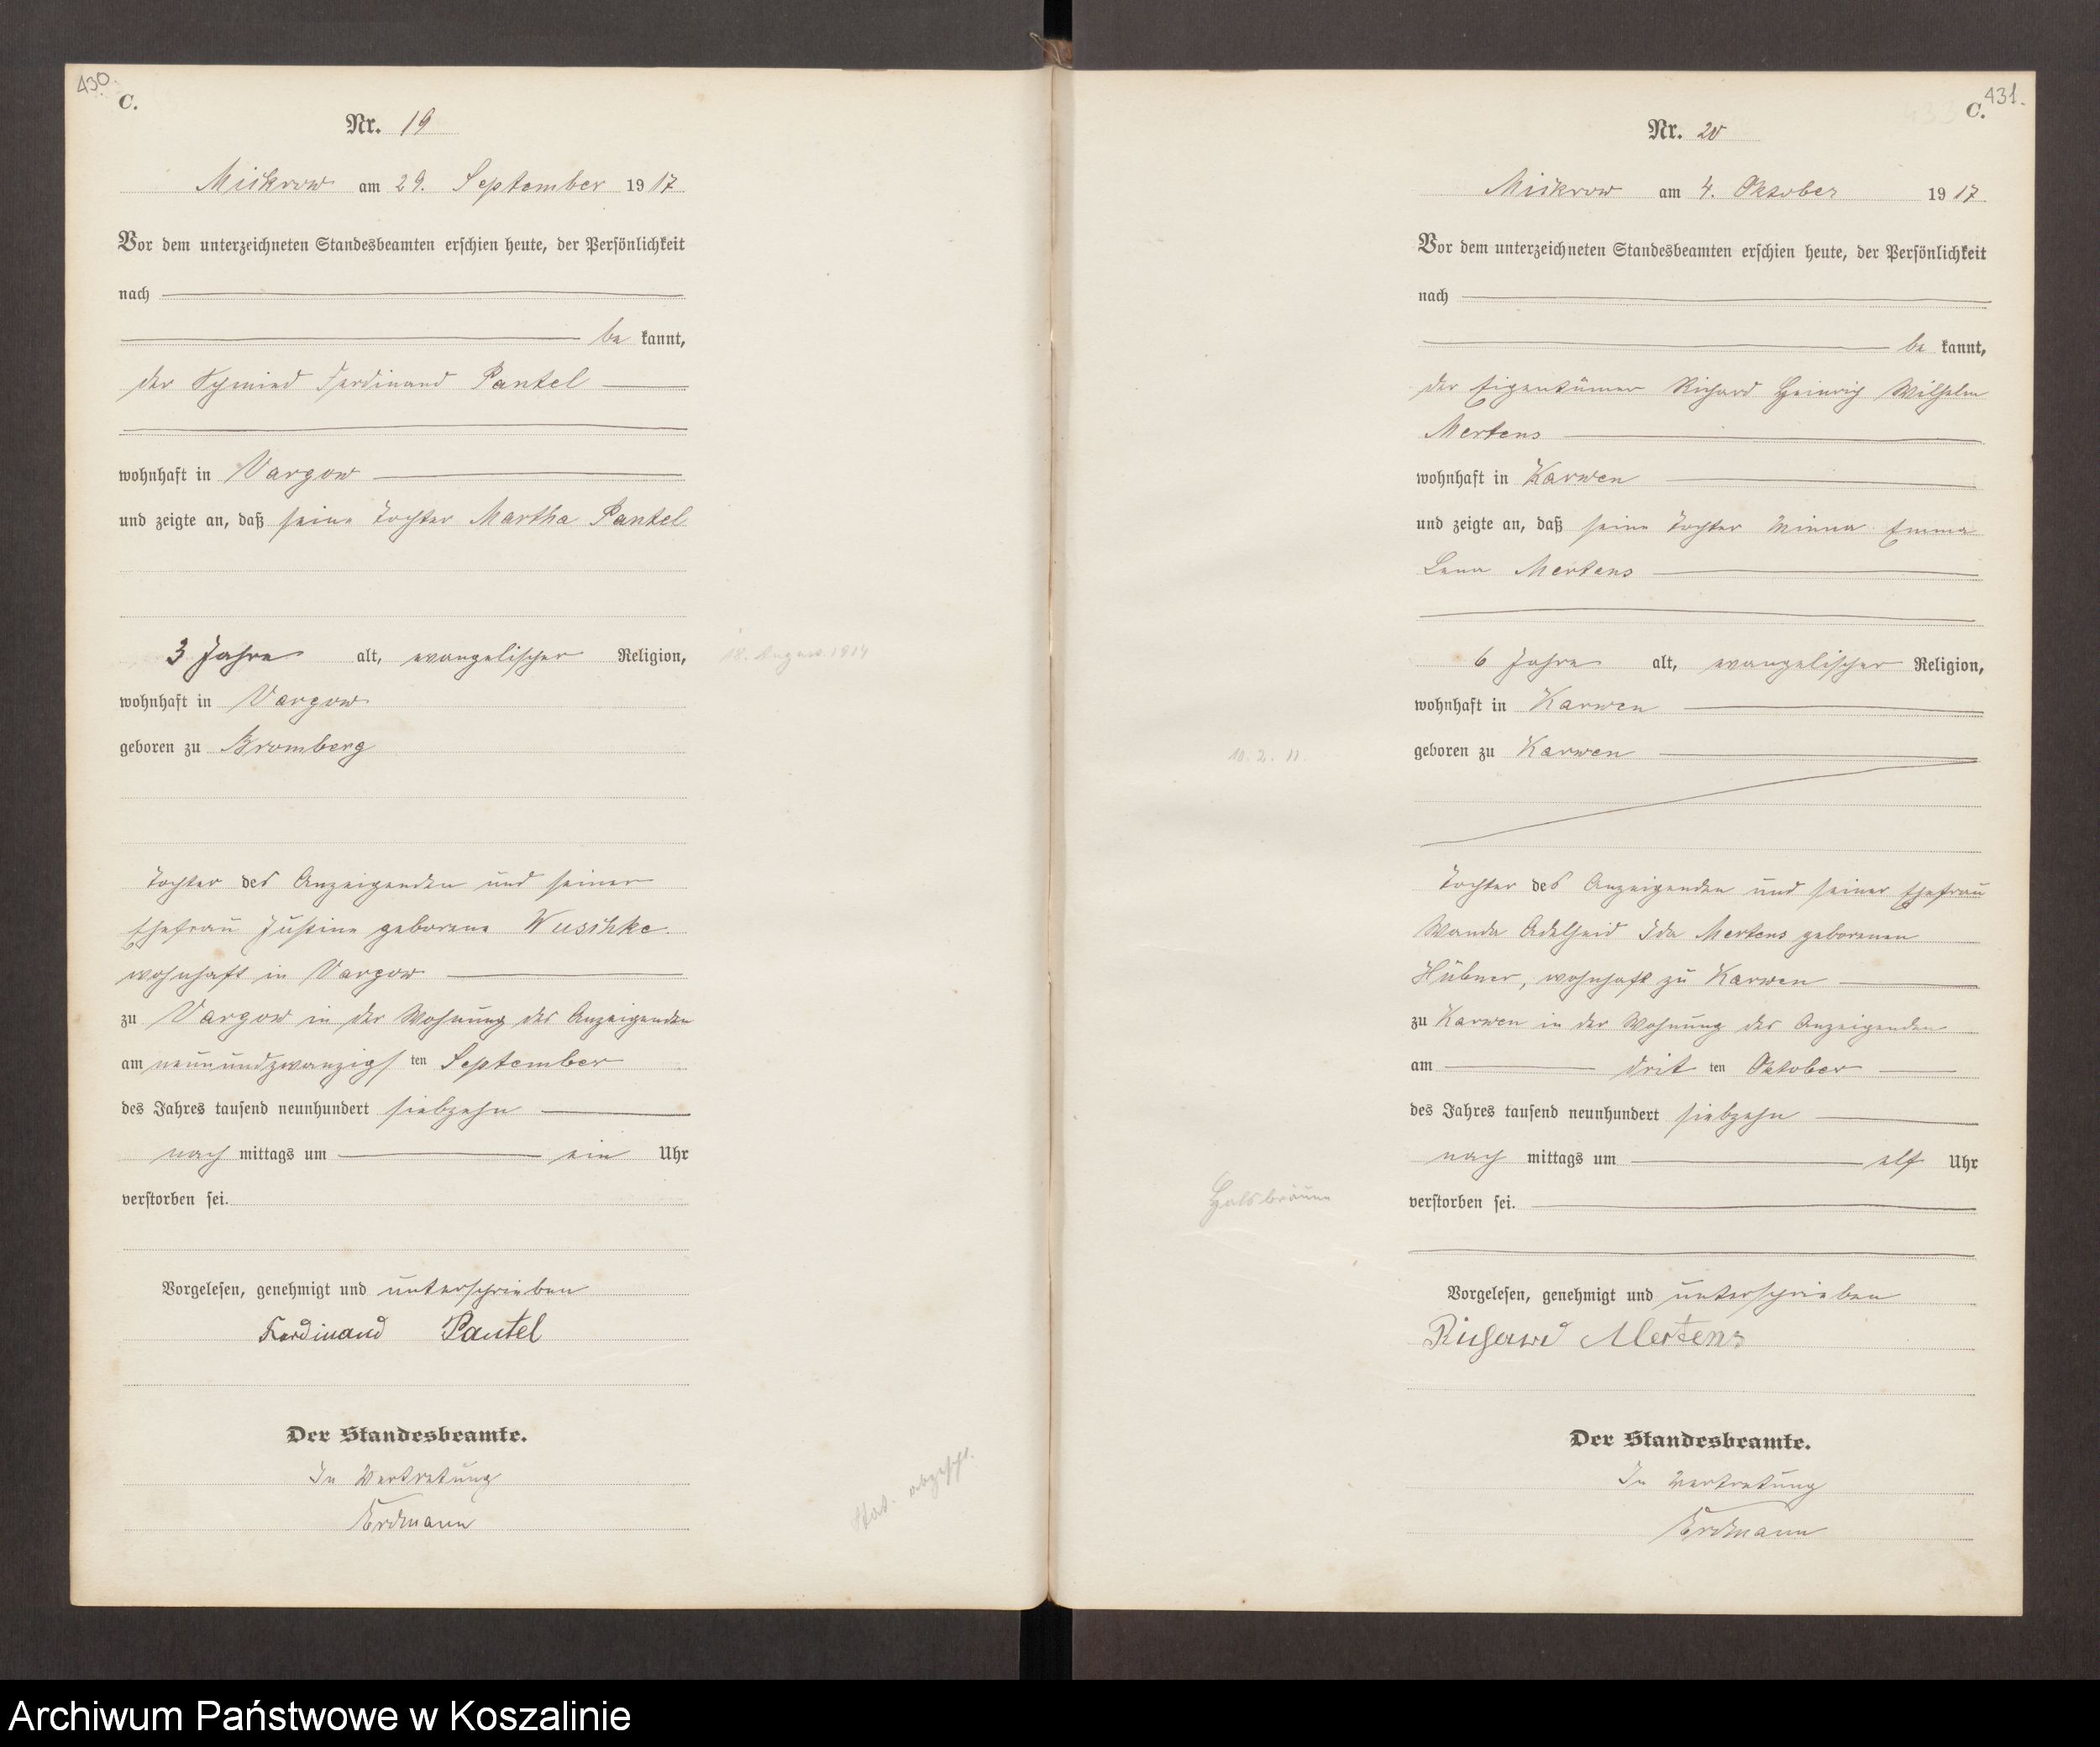 430.
C.
Nr. 19
Mickrow am 29. September 1917
Vor dem unterzeichneten Standesbeamten erschien heute, der Persönlichkeit
nach
bekannt,
der Schmied Ferdinand Pantel
wohnhaft in Vargow
und zeigte an, daß seine Tochter Martha Pantel
3 Jahre alt, evangelischer Religion,
18. August 1914
wohnhaft in Vargow
geboren zu Bromberg
Tochter des Anzeigenden und seiner
Ehefrau Justine geborene Wuschke.
wohnhaft in Vargow
zu Vargow in der Wohnung des Anzeigenden
am neunundzwanzigsten September
des Jahres tausend neunhundert siebzehn
nachmittags um ein Uhr
verstorben sei.
Vorgelesen, genehmigt und unterschrieben
Ferdinand Pantel
Der Standesbeamte.
In Vertretung
Erdmann
431.
C.
Nr. 20
Mickrow am 4. Oktober 1917
Vor dem unterzeichneten Standesbeamten erschien heute, der Persönlichkeit
nach
bekannt,
der Eigentümer Richard Heinrich Wilhelm
Mertens
wohnhaft in Karwen
und zeigte an, daß seine Tochter Minna Emma
Lena Mertens
6 Jahre alt, evangelischer Religion,
wohnhaft in Karwen
10. 2. 11.
geboren zu Karwen
Tochter des Anzeigenden und seiner Ehefrau
Wanda Adelheid Ida Mertens geborenen
Hübner, wohnhaft zu Karwen
zu Karwen in der Wohnung des Anzeigenden
am dritten Oktober
des Jahres tausend neunhundert siebzehn
nachmittags um elf Uhr
Halsbräune
verstorben sei.
Vorgelesen, genehmigt und unterschrieben
Richard Mertens
Der Standesbeamte.
In Vertretung
Erdmann
Archiwum Państwowe w Koszalinie